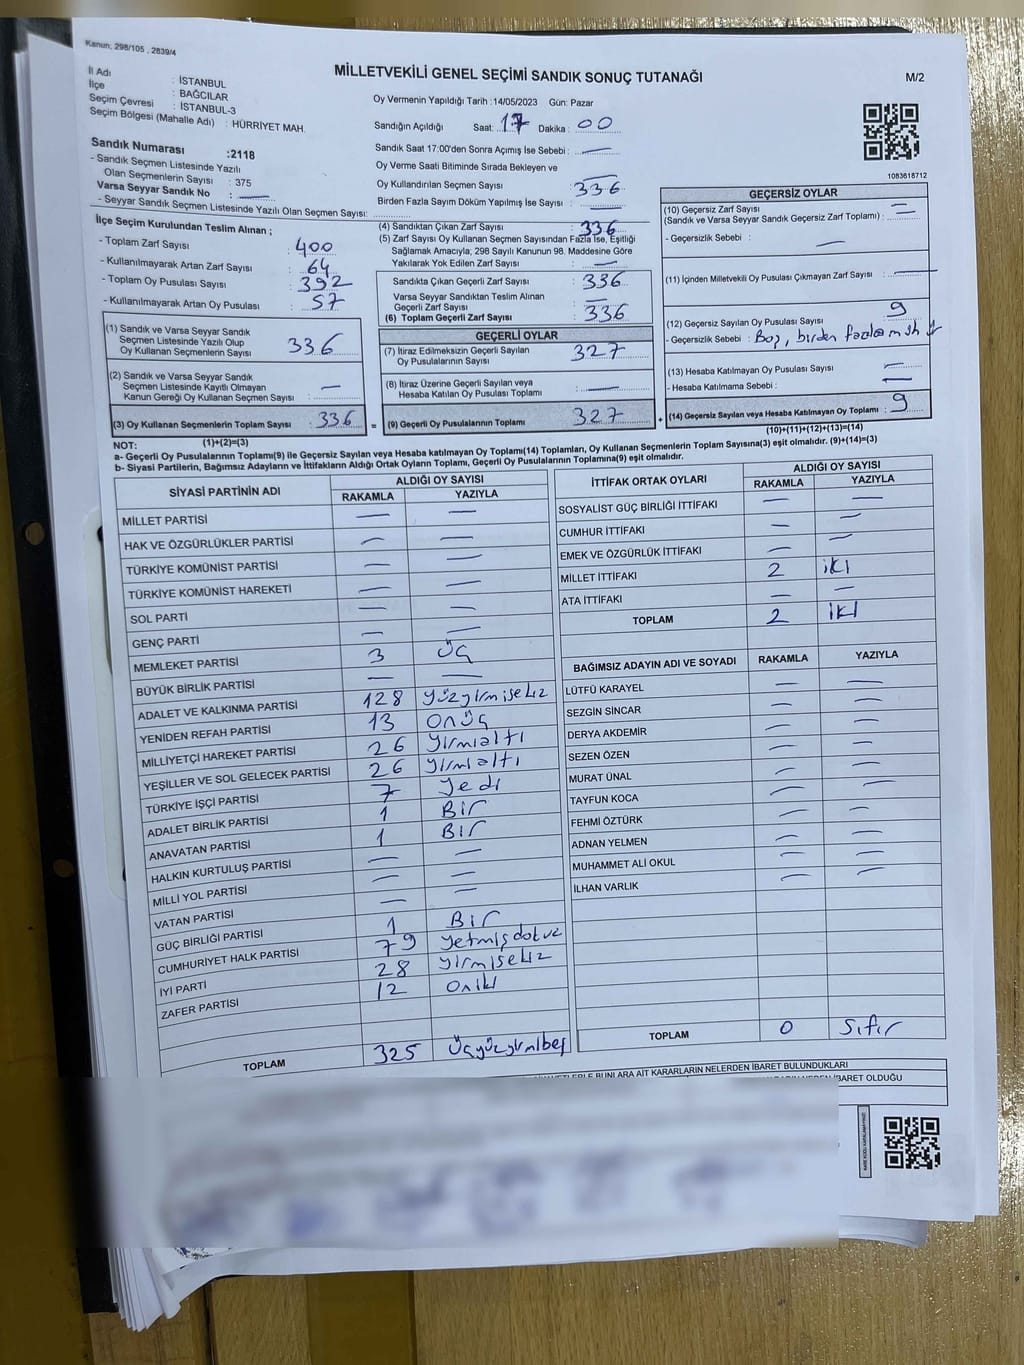 Kanun; 298/105 , 2839/4
MİLLETVEKİLİ GENEL SEÇİMİ SANDIK SONUÇ TUTANAĞI
M/2
İl Adı : İSTANBUL
İlçe : BAĞCILAR
Seçim Çevresi : İSTANBUL-3
Seçim Bölgesi (Mahalle Adı) : HÜRRİYET MAH.
Oy Vermenin Yapıldığı Tarih :14/05/2023 Gün: Pazar
Sandığın Açıldığı Saat: 17 Dakika : 00
Sandık Saat 17:00'den Sonra Açımış İse Sebebi : —
Oy Verme Saati Bitiminde Sırada Bekleyen ve
Oy Kullandırılan Seçmen Sayısı : 336
Birden Fazla Sayım Döküm Yapılmış İse Sayısı : —
1083618712
Sandık Numarası :2118
- Sandık Seçmen Listesinde Yazılı
Olan Seçmenlerin Sayısı : 375
Varsa Seyyar Sandık No : —
- Seyyar Sandık Seçmen Listesinde Yazılı Olan Seçmen Sayısı:
İlçe Seçim Kurulundan Teslim Alınan ;
- Toplam Zarf Sayısı : 400
- Kullanılmayarak Artan Zarf Sayısı : 64
- Toplam Oy Pusulası Sayısı : 392
- Kullanılmayarak Artan Oy Pusulası : 57
(1) Sandık ve Varsa Seyyar Sandık
Seçmen Listesinde Yazılı Olup
Oy Kullanan Seçmenlerin Sayısı : 336
(2) Sandık ve Varsa Seyyar Sandık
Seçmen Listesinde Kayıtlı Olmayan
Kanun Gereği Oy Kullanan Seçmen Sayısı : —
(3) Oy Kullanan Seçmenlerin Toplam Sayısı : 336
(1)+(2)=(3)
(4) Sandıktan Çıkan Zarf Sayısı : 336
(5) Zarf Sayısı Oy Kullanan Seçmen Sayısından Fazla İse, Eşitliği
Sağlamak Amacıyla, 298 Sayılı Kanunun 98. Maddesine Göre
Yakılarak Yok Edilen Zarf Sayısı : —
Sandıkta Çıkan Geçerli Zarf Sayısı : 336
Varsa Seyyar Sandıktan Teslim Alınan
Geçerli Zarf Sayısı : —
(6) Toplam Geçerli Zarf Sayısı : 336
GEÇERLİ OYLAR
(7) İtiraz Edilmeksizin Geçerli Sayılan
Oy Pusulalarının Sayısı : 327
(8) İtiraz Üzerine Geçerli Sayılan veya
Hesaba Katılan Oy Pusulası Toplamı : —
= (9) Geçerli Oy Pusulalarının Toplamı : 327
GEÇERSİZ OYLAR
(10) Geçersiz Zarf Sayısı
(Sandık ve Varsa Seyyar Sandık Geçersiz Zarf Toplamı) : —
- Geçersizlik Sebebi : —
(11) İçinden Milletvekili Oy Pusulası Çıkmayan Zarf Sayısı : —
(12) Geçersiz Sayılan Oy Pusulası Sayısı : 9
- Geçersizlik Sebebi : Boş, birden fazla
(13) Hesaba Katılmayan Oy Pusulası Sayısı : —
- Hesaba Katılmama Sebebi : —
+ (14) Geçersiz Sayılan veya Hesaba Katılmayan Oy Toplamı : 9
(10)+(11)+(12)+(13)=(14)
NOT:
a- Geçerli Oy Pusulalarının Toplamı(9) ile Geçersiz Sayılan veya Hesaba katılmayan Oy Toplamı(14) Toplamları, Oy Kullanan Seçmenlerin Toplam Sayısına(3) eşit olmalıdır. (9)+(14)=(3)
b- Siyasi Partilerin, Bağımsız Adayların ve İttifakların Aldığı Ortak Oyların Toplamı, Geçerli Oy Pusulalarının Toplamına(9) eşit olmalıdır.
SİYASİ PARTİNİN ADI ALDIĞI OY SAYISI
RAKAMLA YAZIYLA
MİLLET PARTİSİ — —
HAK VE ÖZGÜRLÜKLER PARTİSİ — —
TÜRKİYE KOMÜNİST PARTİSİ — —
TÜRKİYE KOMÜNİST HAREKETİ — —
SOL PARTİ — —
GENÇ PARTİ — —
MEMLEKET PARTİSİ 3 Üç
BÜYÜK BİRLİK PARTİSİ — —
ADALET VE KALKINMA PARTİSİ 128 yüzyirmisekiz
YENİDEN REFAH PARTİSİ 13 onüç
MİLLİYETÇİ HAREKET PARTİSİ 26 yirmialtı
YEŞİLLER VE SOL GELECEK PARTİSİ 26 yirmialtı
TÜRKİYE İŞÇİ PARTİSİ 7 yedi
ADALET BİRLİK PARTİSİ 1 Bir
ANAVATAN PARTİSİ 1 Bir
HALKIN KURTULUŞ PARTİSİ — —
MİLLİ YOL PARTİSİ — —
VATAN PARTİSİ — —
GÜÇ BİRLİĞİ PARTİSİ 1 Bir
CUMHURİYET HALK PARTİSİ 79 yetmişdokuz
İYİ PARTİ 28 yirmisekiz
ZAFER PARTİSİ 12 oniki
TOPLAM 325 üçyüzyirmibeş
İTTİFAK ORTAK OYLARI ALDIĞI OY SAYISI
RAKAMLA YAZIYLA
SOSYALİST GÜÇ BİRLİĞİ İTTİFAKI — —
CUMHUR İTTİFAKI — —
EMEK VE ÖZGÜRLÜK İTTİFAKI — —
MİLLET İTTİFAKI 2 iki
ATA İTTİFAKI — —
TOPLAM 2 iki
BAĞIMSIZ ADAYIN ADI VE SOYADI RAKAMLA YAZIYLA
LÜTFÜ KARAYEL — —
SEZGİN SİNCAR — —
DERYA AKDEMİR — —
SEZEN ÖZEN — —
MURAT ÜNAL — —
TAYFUN KOCA — —
FEHMİ ÖZTÜRK — —
ADNAN YELMEN — —
MUHAMMET ALİ OKUL — —
İLHAN VARLIK — —
TOPLAM 0 Sıfır
BUNLARA AİT KARARLARIN NELERDEN İBARET BULUNDUKLARI
İBARET OLDUĞU
KARE KODU KARALAMAYINIZ!